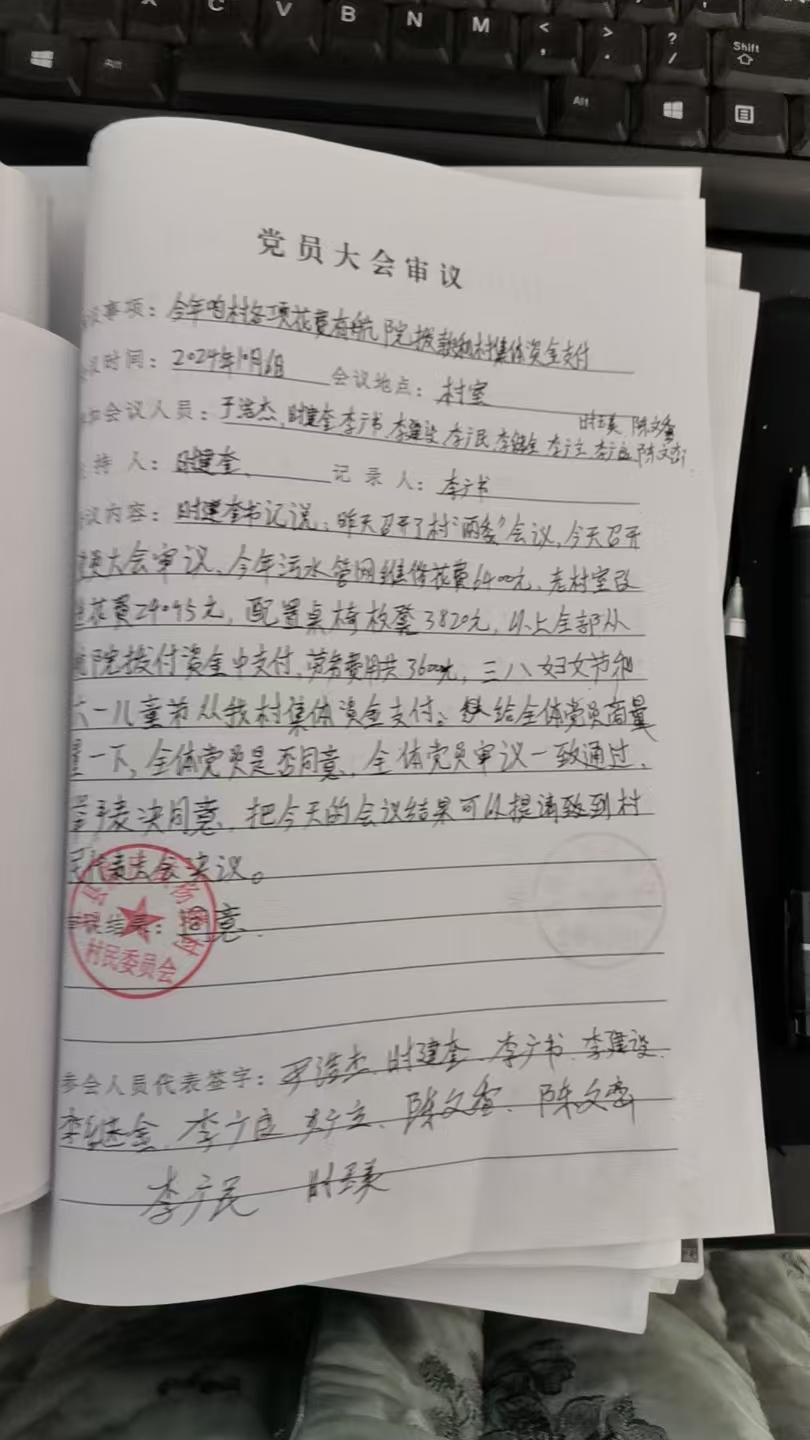 A C V B N M < , > . ? / Shift
Alt Alt
党员大会审议
事项：今年咱村各项花费有航院拨款和村集体资金支付
时间：2024年10月6日 会议地点：村室
时玉英 陈文香
会议人员：于浩杰、时建奎 李广书 李建设 李广民 李继金 李广立 李广良 陈文杰
持人：时建奎、 记录人：李广书
议内容：时建奎书记说：昨天召开了村“两委”会议，今天召开
党员大会审议、今年污水管网维修花费6400元，老村室改
造花费24045元，配置桌椅板凳3820元，以上全部从
航院拨付资金中支付，劳务费用共3600元，三八妇女节和
六一儿童节从我村集体资金支付。给全体党员商量
一下，全体党员是否同意、全体党员审议一致通过、
举手表决同意、把今天的会议结果可以提请到村
民代表大会决议。
结果：同意.
村民委员会
参会人员代表签字：于浩杰 时建奎、李广书 李建设
李继金 李广良 李广立、陈文香、陈文
李广民 时玉英